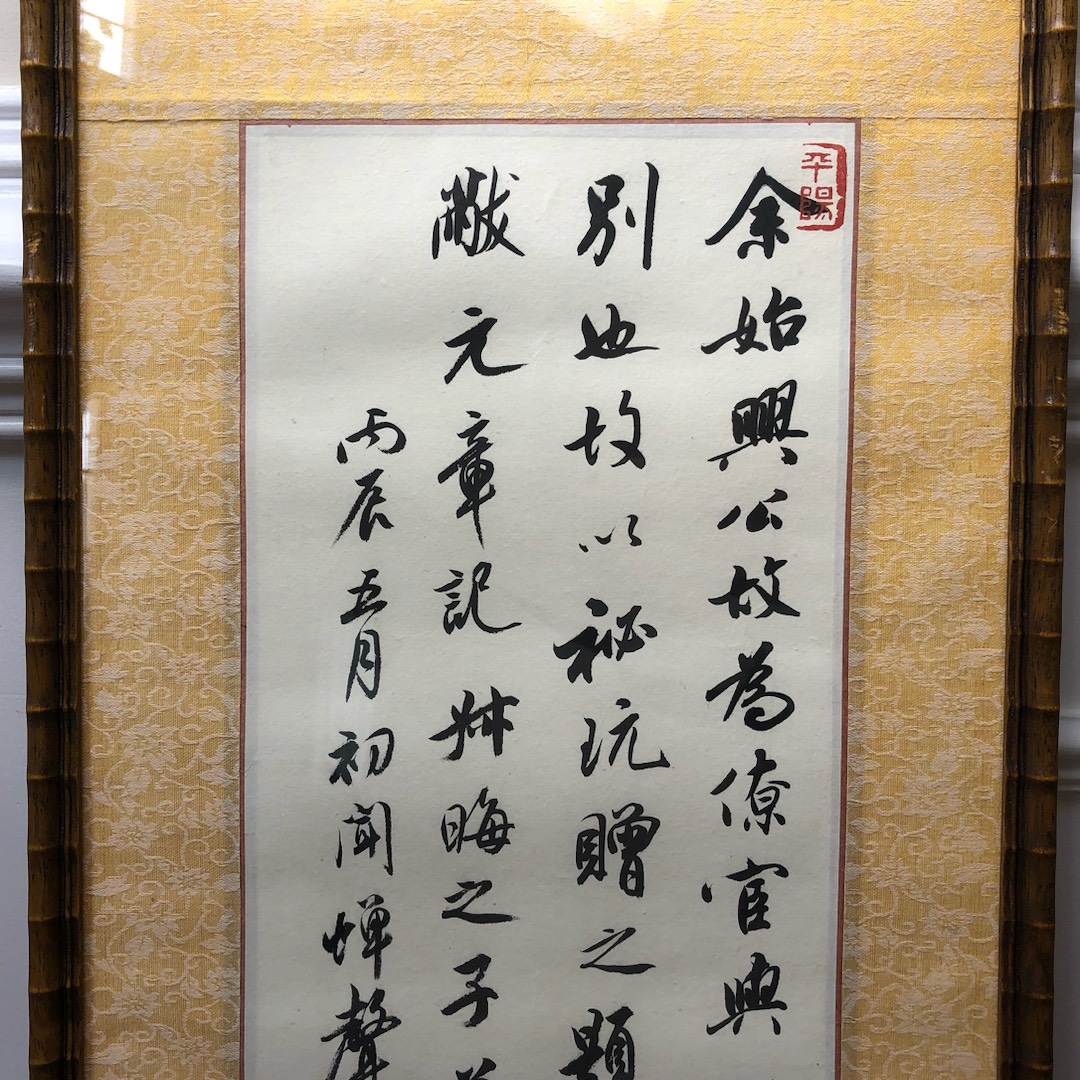 平陽
余始興公故為僚宦與
別也故以秘玩贈之題
黻元章記叔晦之子
丙辰五月初聞蟬聲